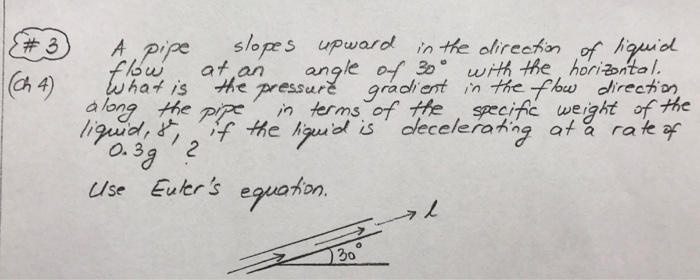 #3 A pipe slopes upward in the direction of liquid
flow at an angle of 30° with the horizontal.
(Ch 4) What is the pressure gradient in the flow direction
along the pipe in terms of the specific weight of the
liquid, γ, if the liquid is decelerating at a rate of
0.3g ?
Use Euler's equation.
l
30°